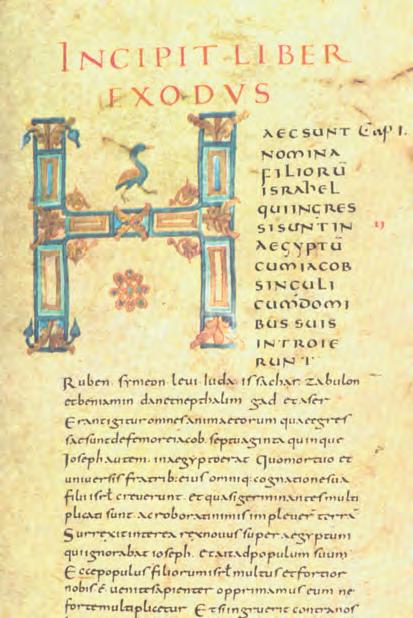 INCIPIT LIBER
EXODVS
HAEC SUNT Cap I.
NOMINA
FILIORŪ
ISRAHEL
QUIINGRES
SISUNTIN
AEGYPTŪ
CUMIACOB
SINGULI
CUMDOMI
BUS SUIS
INTROIE
RUNT
Ruben. symeon. leui. iuda. issachar. zabulon
etbeniamin danetnepthalim gad etaser
Erantigituromnesanimaeeorum quaeegres
saesuntdefemoreiacob. septuaginta quinque
Ioseph autem. inaegyptoerat Quomortuo et
uniuersis fratrib: eius omniq: cognationesua
filii isrl creuerunt. et quasi germinantes multi
plicati sunt. ac roborati nimis impleuer terrā
Surrexit interea rex nouus super aegyptum
qui ignorabat ioseph. et ait ad populum suum
Ecce populus filiorum isrl multus et fortior
nobis ē uenite sapienter opprimamus eum ne
forte multiplicetur Et si ingruerit contra nos